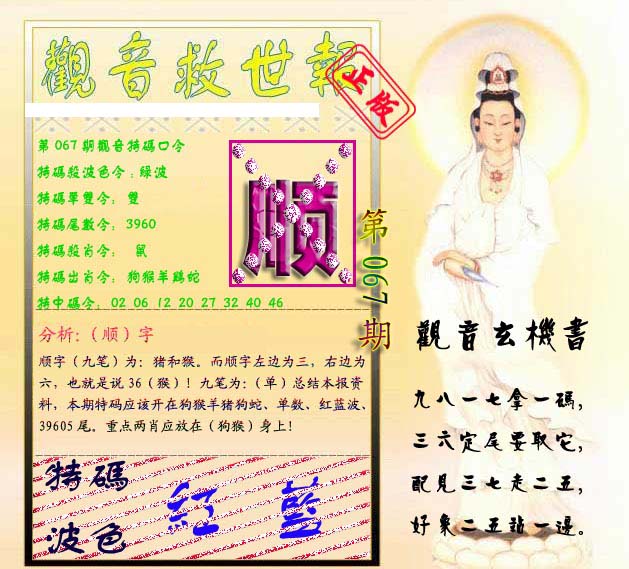 觀音救世報
正版
第067期觀音特碼口令
特碼殺波色令:綠波
特碼單雙令: 雙
特碼尾數令: 3960
特碼殺肖令: 鼠
特碼出肖令: 狗猴羊鷄蛇
特中碼令: 02 06 12 20 27 32 40 46
顺
第067期
分析:(顺)字
顺字(九笔)为:猪和猴。而顺字左边为三，右边为
六，也就是说36(猴)！九笔为:(单)总结本报资
料，本期特码应该开在狗猴羊猪狗蛇、单数、红蓝波、
39605尾。重点两肖应放在(狗猴)身上！
特碼
波色
紅 藍
觀音玄機書
九八一七拿一碼，
三六定尾要取它，
配見三七走二五，
好象二五站一邊。